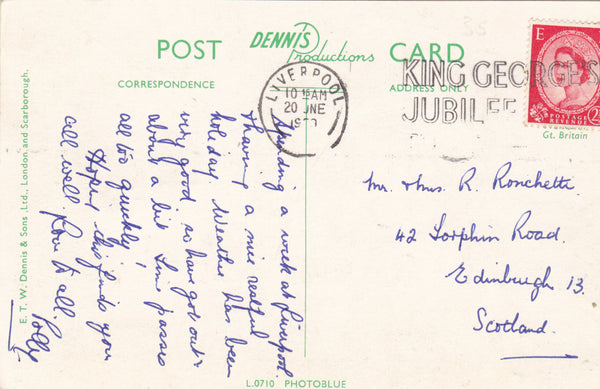 POST DENNIS Productions CARD
CORRESPONDENCE
ADDRESS ONLY
LIVERPOOL
10 AM
20 JNE
KING GEORGE'S
JUBILEE
E
POSTAGE
REVENUE
2
Gt. Britain
Spending a week at Liverpool
& having a nice restful
holiday. Weather has been
very good so have got out &
about a bit. Time passes
all too quickly.
Hoping this finds you
all well. Love to all.
Polly
Mr. & Mrs. R. Ronchetti
42 Lorphin Road.
Edinburgh 13.
Scotland.
E. T. W. Dennis & Sons Ltd., London and Scarborough.
L.0710 PHOTOBLUE